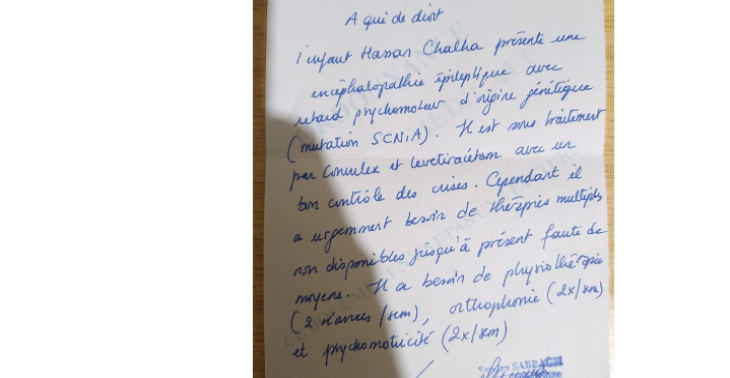 A qui de droit
l'enfant Hassan Chalha présente une
encéphalopathie épileptique avec
retard psychomoteur d'origine génétique
(mutation SCN1A). Il est sous traitement
par Convulex et levetiracétam avec un
bon contrôle des crises. Cependant il
a urgemment besoin de thérapies multiples
non disponibles jusqu'à présent faute de
moyens. Il a besoin de physiothérapie
(2 séances/sem), orthophonie (2x/sem)
et psychomotricité (2x/sem)
SABBAGH